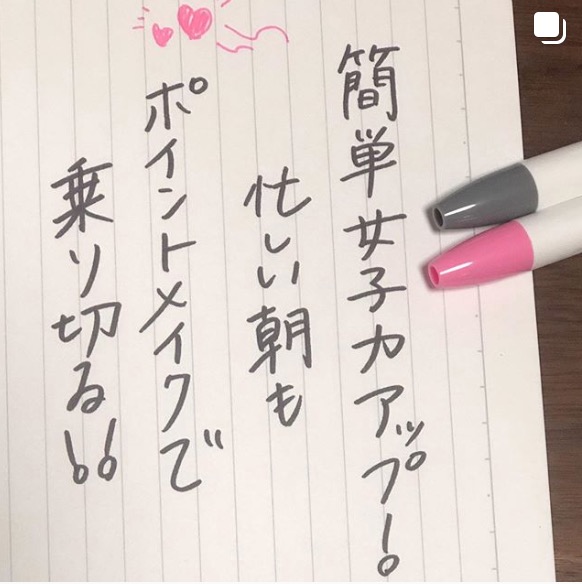 簡単女子力アップ!
忙しい朝も
ポイントメイクで
乗り切る!!